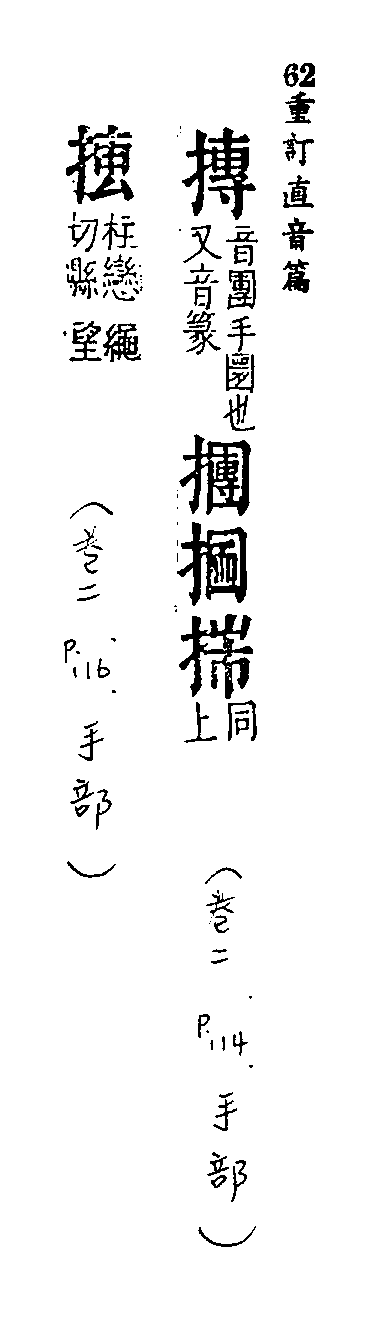 62重訂直音篇
摶
音團手圜也
又音篆
揣
同
上
(卷二 P.114. 手部)
柱戀
切縣
繩
望
(卷二 P.116. 手部)